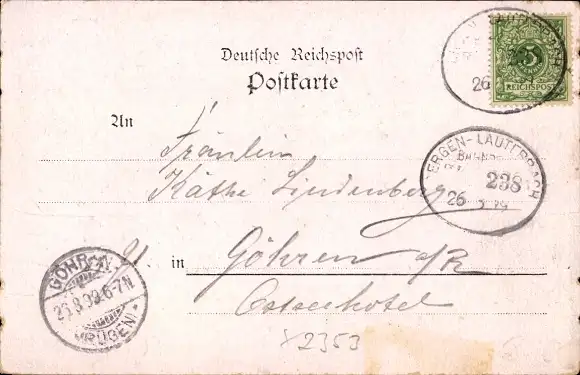 Deutsche Reichspost
Postkarte
5
REICHSPOST
26
An
Fräulein
Käthe Lindenberg
BERGEN-LAUTERBACH
BAHNPOST
238
26
in Göhren a/R
Ostseehotel
GÖHREN
26.8.99.6-7N
(RÜGEN)
2353